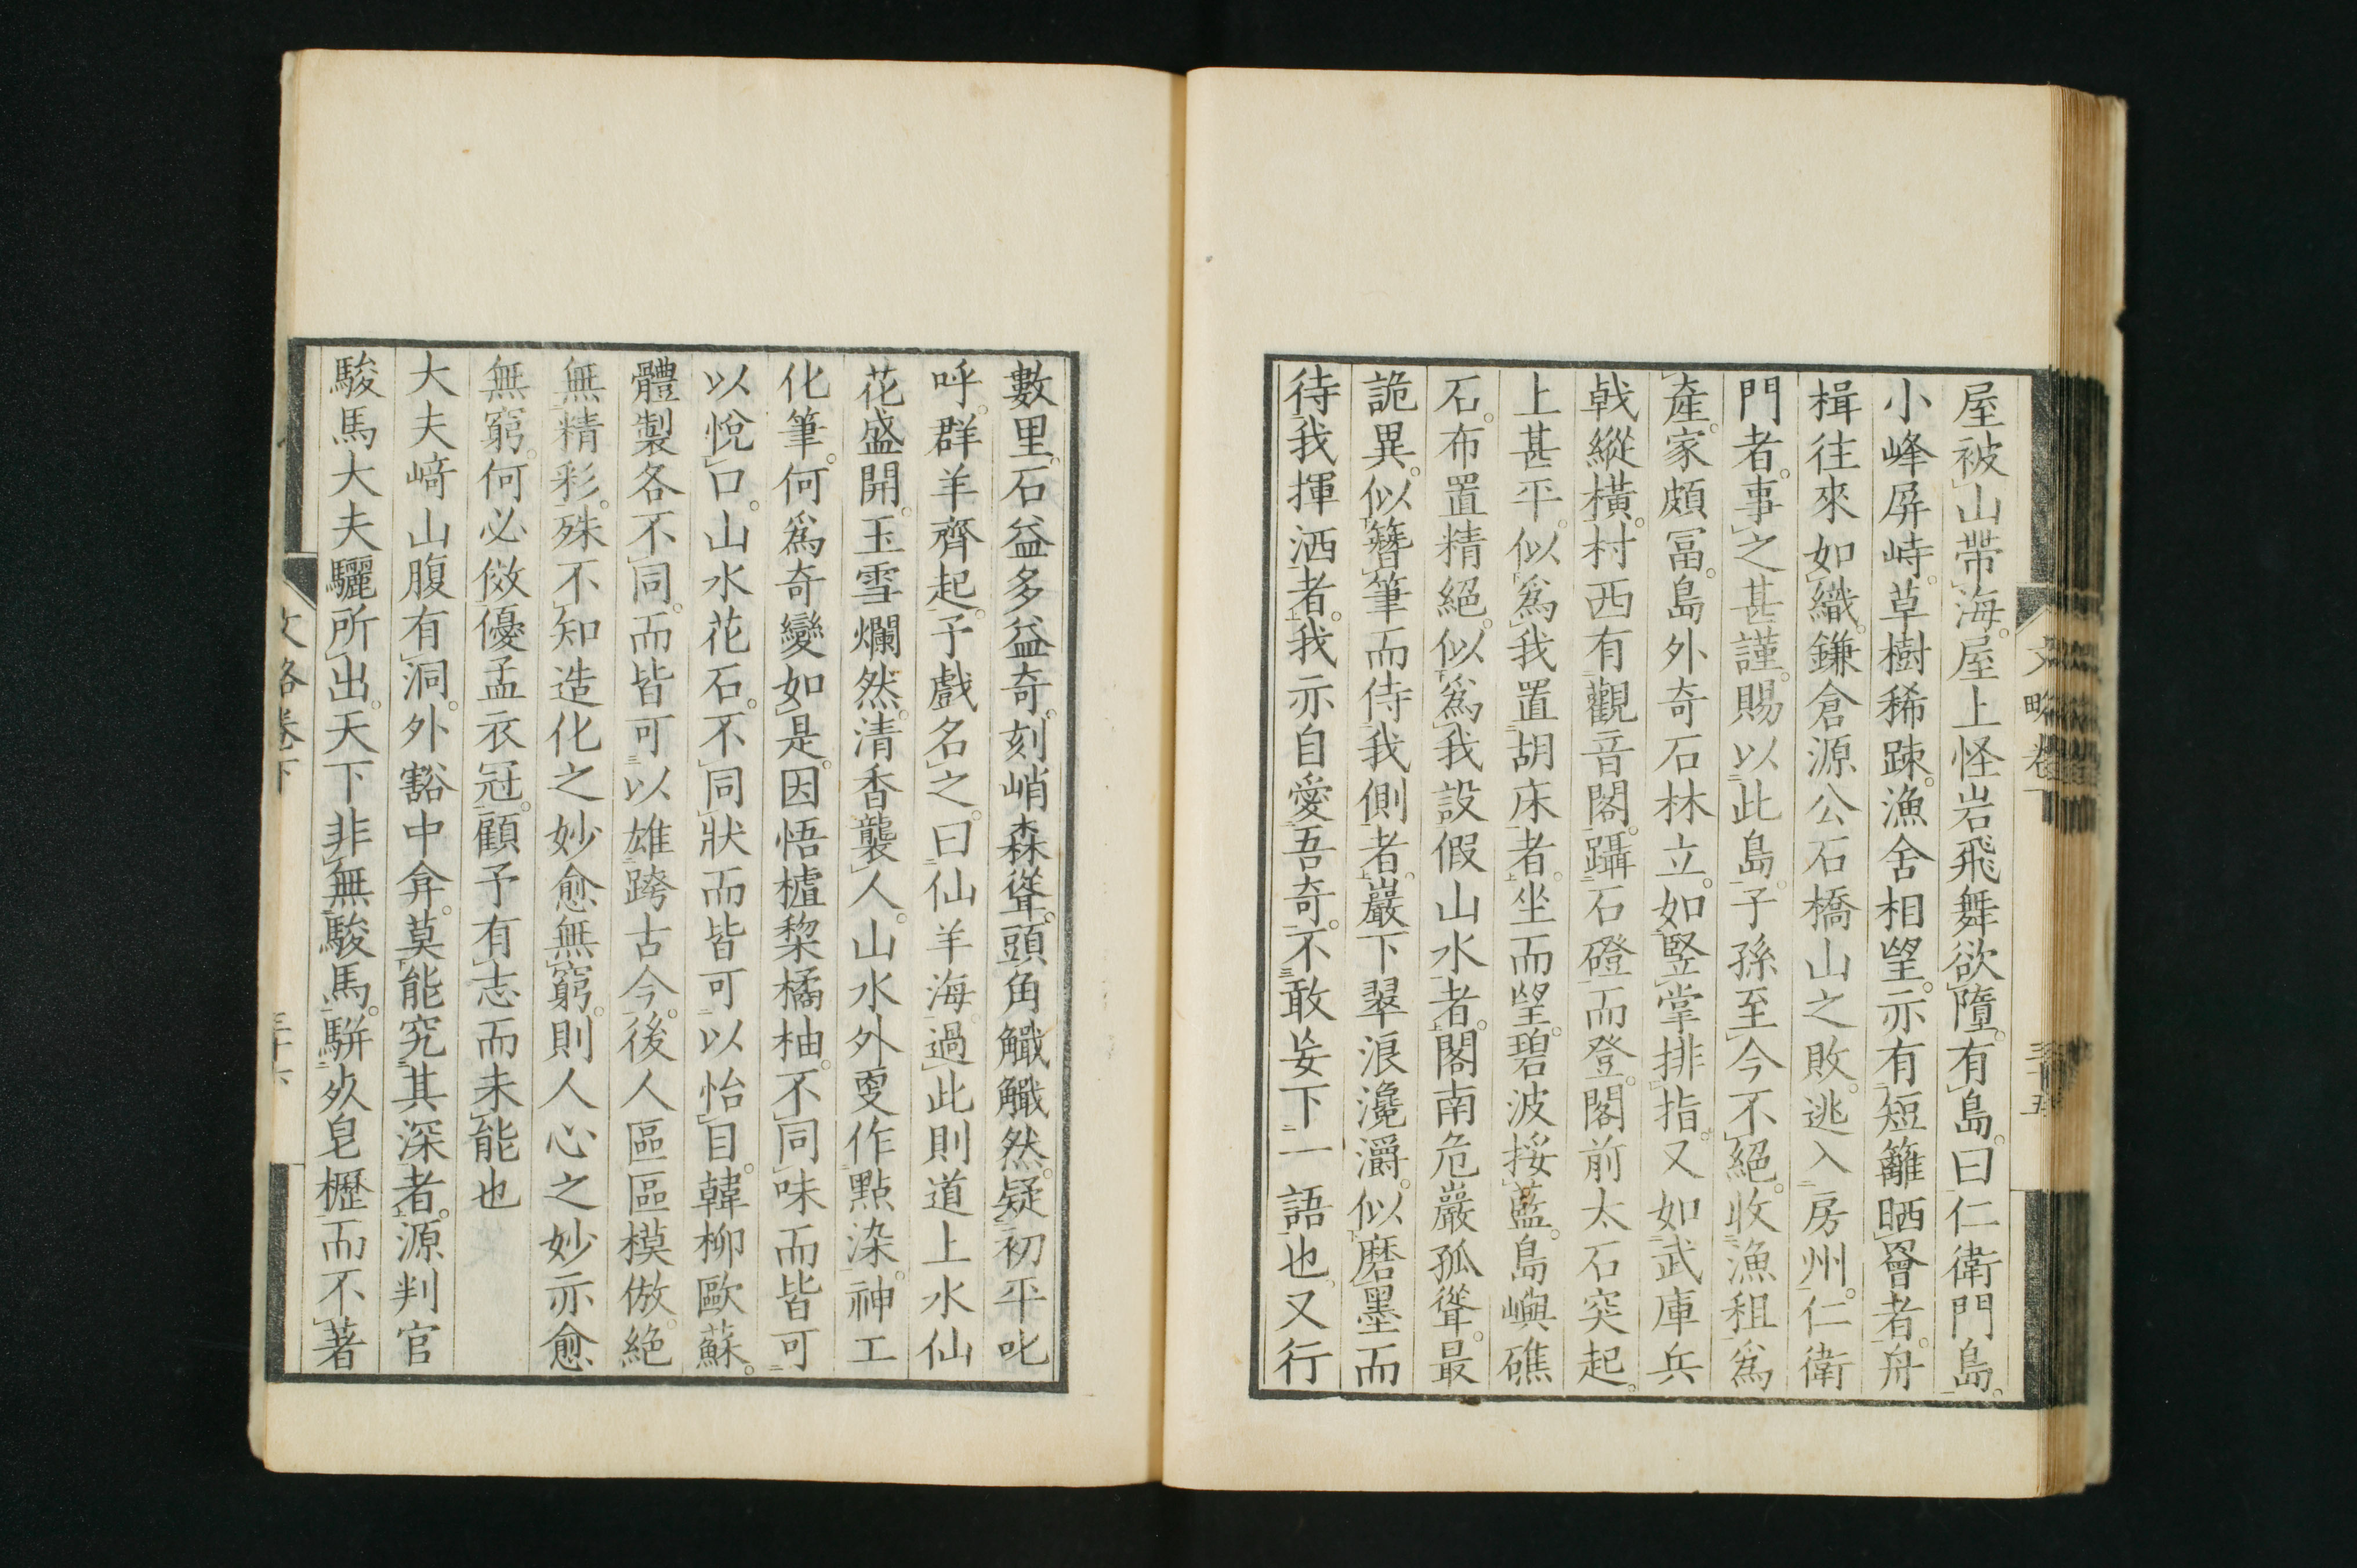 屋被山帶海。屋上怪岩飛舞欲墮。有島。曰仁衛門島。
小峰屏峙。草樹稀踈。漁舍相望。亦有短籬晒罾者。舟
楫往來如織。鎌倉源公石橋山之敗。逃入房州。仁衛
門者。事之甚謹。賜以此島。子孫至今不絕。收漁租爲
產。家頗冨。島外奇石林立。如竪掌排指。又如武庫兵
戟縱橫。村西有觀音閣。躡石磴而登。閣前太石突起。
上甚平。似爲我置胡床者。坐而望。碧波挼藍。島嶼礁
石。布置精絕。似爲我設假山水者。閣南危巖孤聳。最
詭異。似簪筆而侍我側者。巖下翠浪瀺灂。似磨墨而
待我揮洒者。我亦自愛吾奇。不敢妄下一語也。又行
文略卷
三十五
數里。石益多益奇。刻峭森聳。頭角觿觿然。疑初平叱
呼。群羊齊起。予戲名之。曰仙羊海。過此則道上水仙
花盛開。玉雪爛然。清香襲人。山水外更作點染。神工
化筆。何爲奇變如是。因悟樝棃橘柚。不同味而皆可
以悅口。山水花石。不同狀而皆可以怡目。韓柳歐蘇。
體製各不同。而皆可以雄跨古今。後人區區模倣。絕
無精彩。殊不知造化之妙愈無窮。則人心之妙亦愈
無窮。何必傚優孟衣冠。顧予有志而未能也
大夫﨑山腹有洞。外豁中弇。莫能究其深者。源判官
駿馬大夫驪所出。天下非無駿馬。駢死皂櫪而不著
文略卷下
三十六